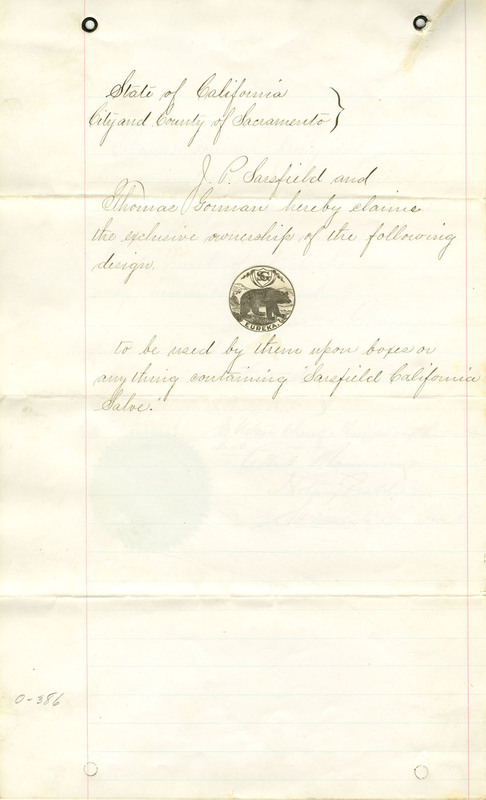 State of California
City and County of Sacramento }
J. P. Sarsfield and
Thomas Gorman hereby claims
the exclusive ownership of the following
design.
EUREKA.
to be used by them upon boxes or
any thing containing "Sarsfield California
Salve."
0-386